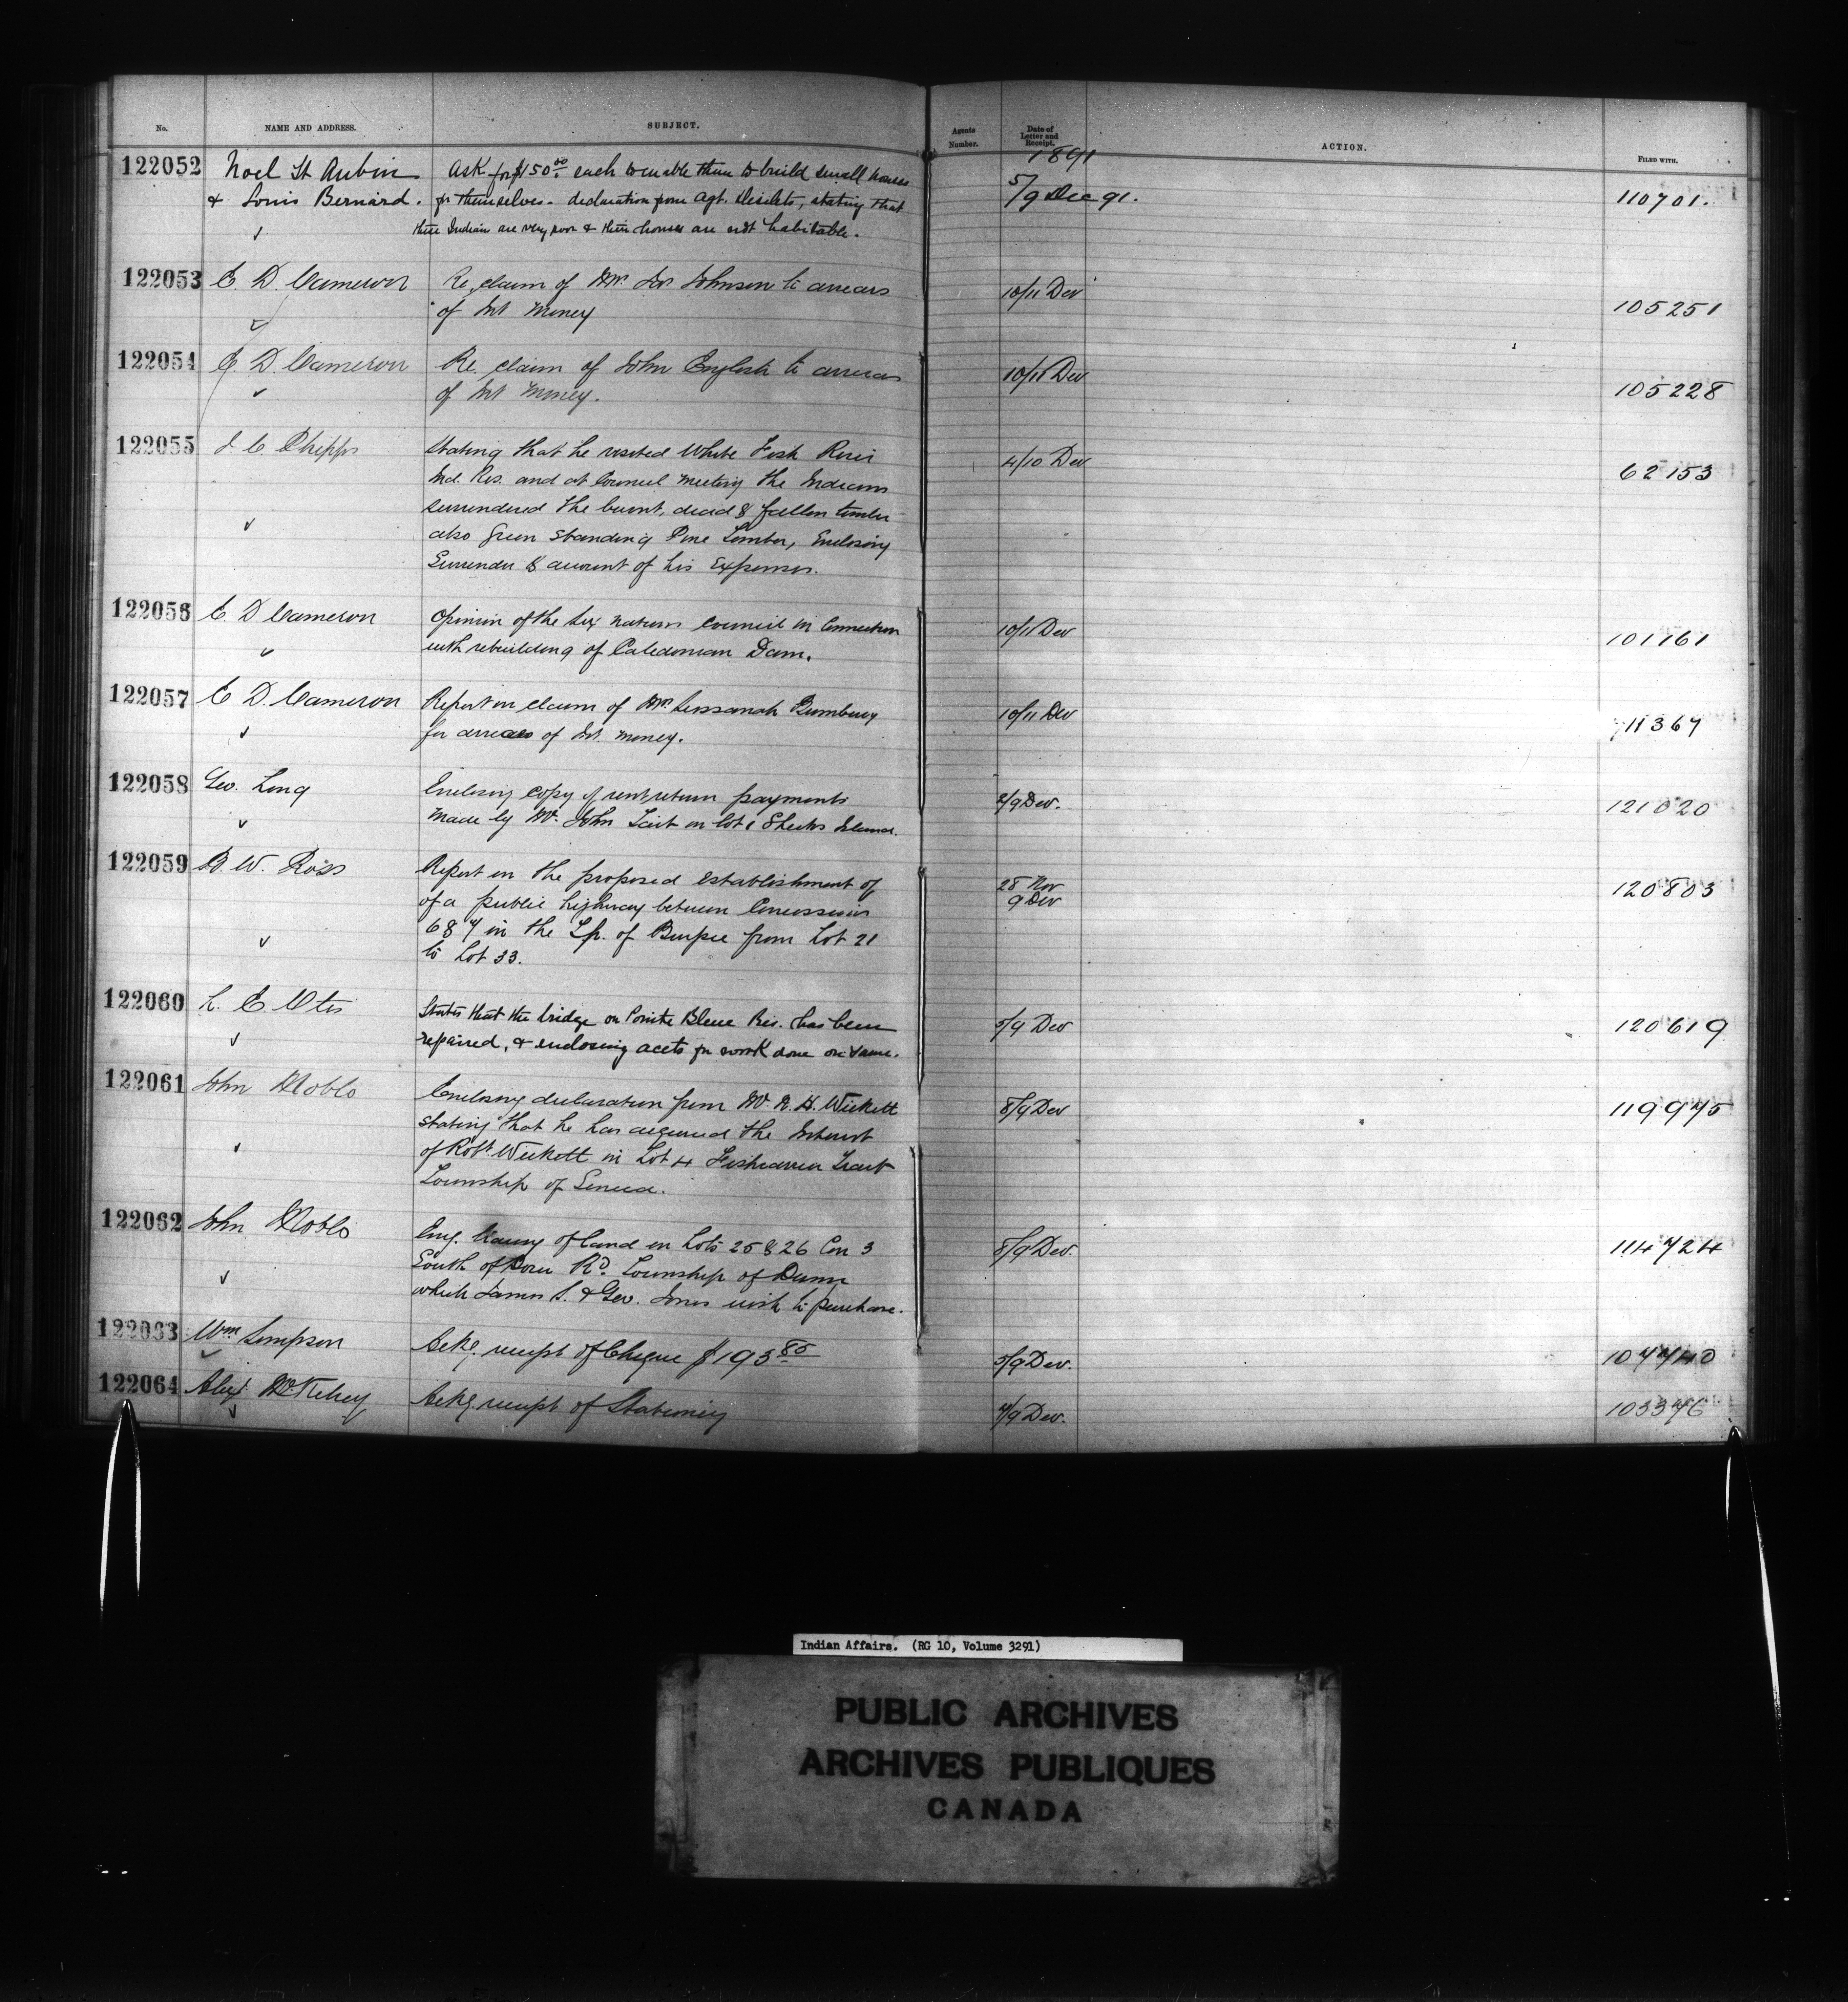 No. NAME AND ADDRESS. SUBJECT. Agents Number. Date of Letter and Receipt. ACTION. FILED WITH.
1891
122052 Noel St Aubin Ask for $150.00 each to enable them to build small houses 5/9 Dec 91. 110701.
& Louis Bernard. for themselves - declaration from Agt. Desilets, stating that
these Indian are very poor & their houses are not habitable.
122053 E. D. Cameron Re claim of Mrs Johnson to arrears 10/11 Dec 105251
of Int Money
122054 E. D. Cameron Re claim of John English to arrears 10/11 Dec 105228
of Int Money.
122055 J C Phipps Stating that he visited White Fish River 4/10 Dec 62153
Ind. Res. and at Council meeting the Indians
surrendered the burnt, dead & fallen timber
also Green standing Pine Timber, Enclosing
Surrender & account of his Expenses.
122056 E. D Cameron Opinion of the Six nations council in Connection 10/11 Dec 101161
with rebuilding of Caledonian Dam.
122057 E D. Cameron Report on claim of Mrs Bumbury 10/11 Dec 11367
for arrears of Int. money.
122058 Geo. Long Enclosing copy of rent return payments 2/9 Dec. 121020
made by Mr. John Tait on lot 1 Sheeks Island.
122059 B. W. Ross Report on the proposed establishment of 28 Nov 120803
of a public highway between Concession 9 Dec
6 & 7 in the Tp. of Burpee from Lot 21
to Lot 33.
122060 L. E. Otis States that the bridge on Pointe Bleue Res. has been 5/9 Dec 120619
repaired, & enclosing accts for work done on same.
122061 John Noble Enclosing declaration from Mr. R. H. Wickett 8/9 Dec 119975
stating that he has acquired the Interest
of Robt Wickett in Lot 4 Fishcarrier Tract
Township of Seneca.
122062 John Noble of land on Lots 25 & 26 Con 3 8/9 Dec. 114724
South of Dover Rd. Township of Dunn
which James S. & Geo. Jones wish to purchase.
122063 Wm Simpson Ackg. receipt of Cheque $193.85 5/9 Dec. 107740
122064 Alex McKelvey Ackg receipt of Stationery 7/9 Dec. 103376
Indian Affairs. (RG 10, Volume 3291)
PUBLIC ARCHIVES
ARCHIVES PUBLIQUES
CANADA